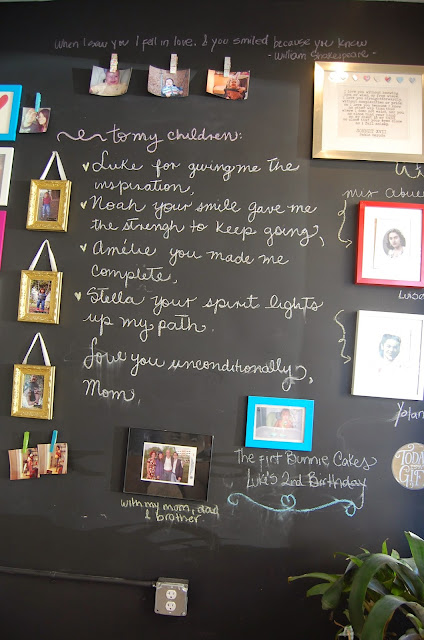 When I saw you I fell in love. & you smiled because you knew
- William Shakespeare -
to my children:
Luke for giving me the
inspiration,
Noah your smile gave me
the strengh to keep going,
Amélie you made me
complete,
Stella your spirit lights
up my path.
Love you unconditionally,
Mom,
mis abue
The first Bunnie Cakes
Luka's 2nd Birthday
with my mom, dad
& brother
Yolan
TODAY
GIFT